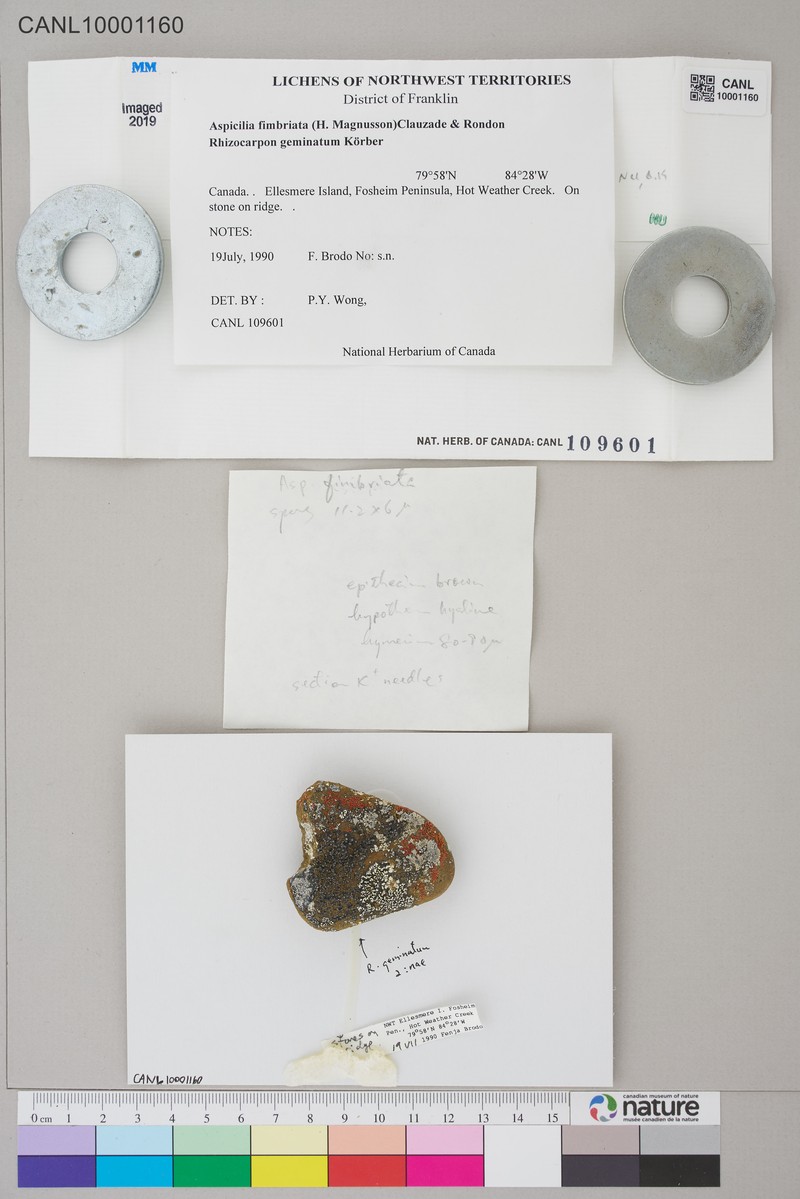 CANL10001160
MM
imaged
2019
LICHENS OF NORTHWEST TERRITORIES
District of Franklin
Aspicilia fimbriata (H. Magnusson)Clauzade & Rondon
Rhizocarpon geminatum Körber
79°58'N 84°28'W
Canada. . Ellesmere Island, Fosheim Peninsula, Hot Weather Creek. On
stone on ridge. .
NOTES:
19July, 1990 F. Brodo No: s.n.
DET. BY : P.Y. Wong,
CANL 109601
National Herbarium of Canada
CANL
10001160
NAT. HERB. OF CANADA: CANL 109601
Asp. fimbriata
epithecium brown
hypothecium hyaline
hymenium 80-90µ
section K+ needles
R. geminatum
NWT Ellesmere I. Fosheim
Pen., Hot Weather Creek
79°58'N 84°28'W
19 VII 1990 Fenja Brodo
stones on
ridge
CANL 10001160
0 cm 1 2 3 4 5 6 7 8 9 10 11 12 13 14 15
canadian museum of nature
nature
musée canadien de la nature